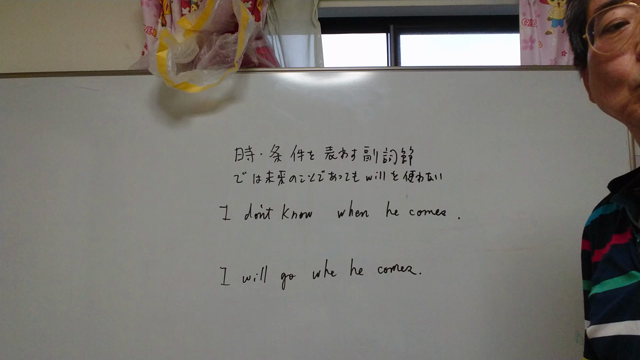 時・条件を表わす副詞節
では未来のことであってもwillを使わない
I don't know when he comes.
I will go whe he comes.